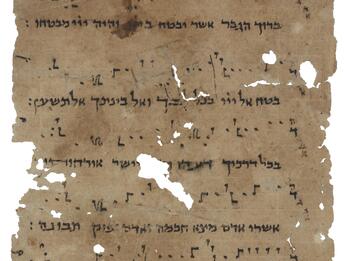 ברוך הגבר אשר יבטח והיה ייי מבטחו :
בטח אל ייי בכל ואל בינתך אלתשען:
בכל דרכיך יישר
אשרי אדם מצא חכמה ואדם תבונה :